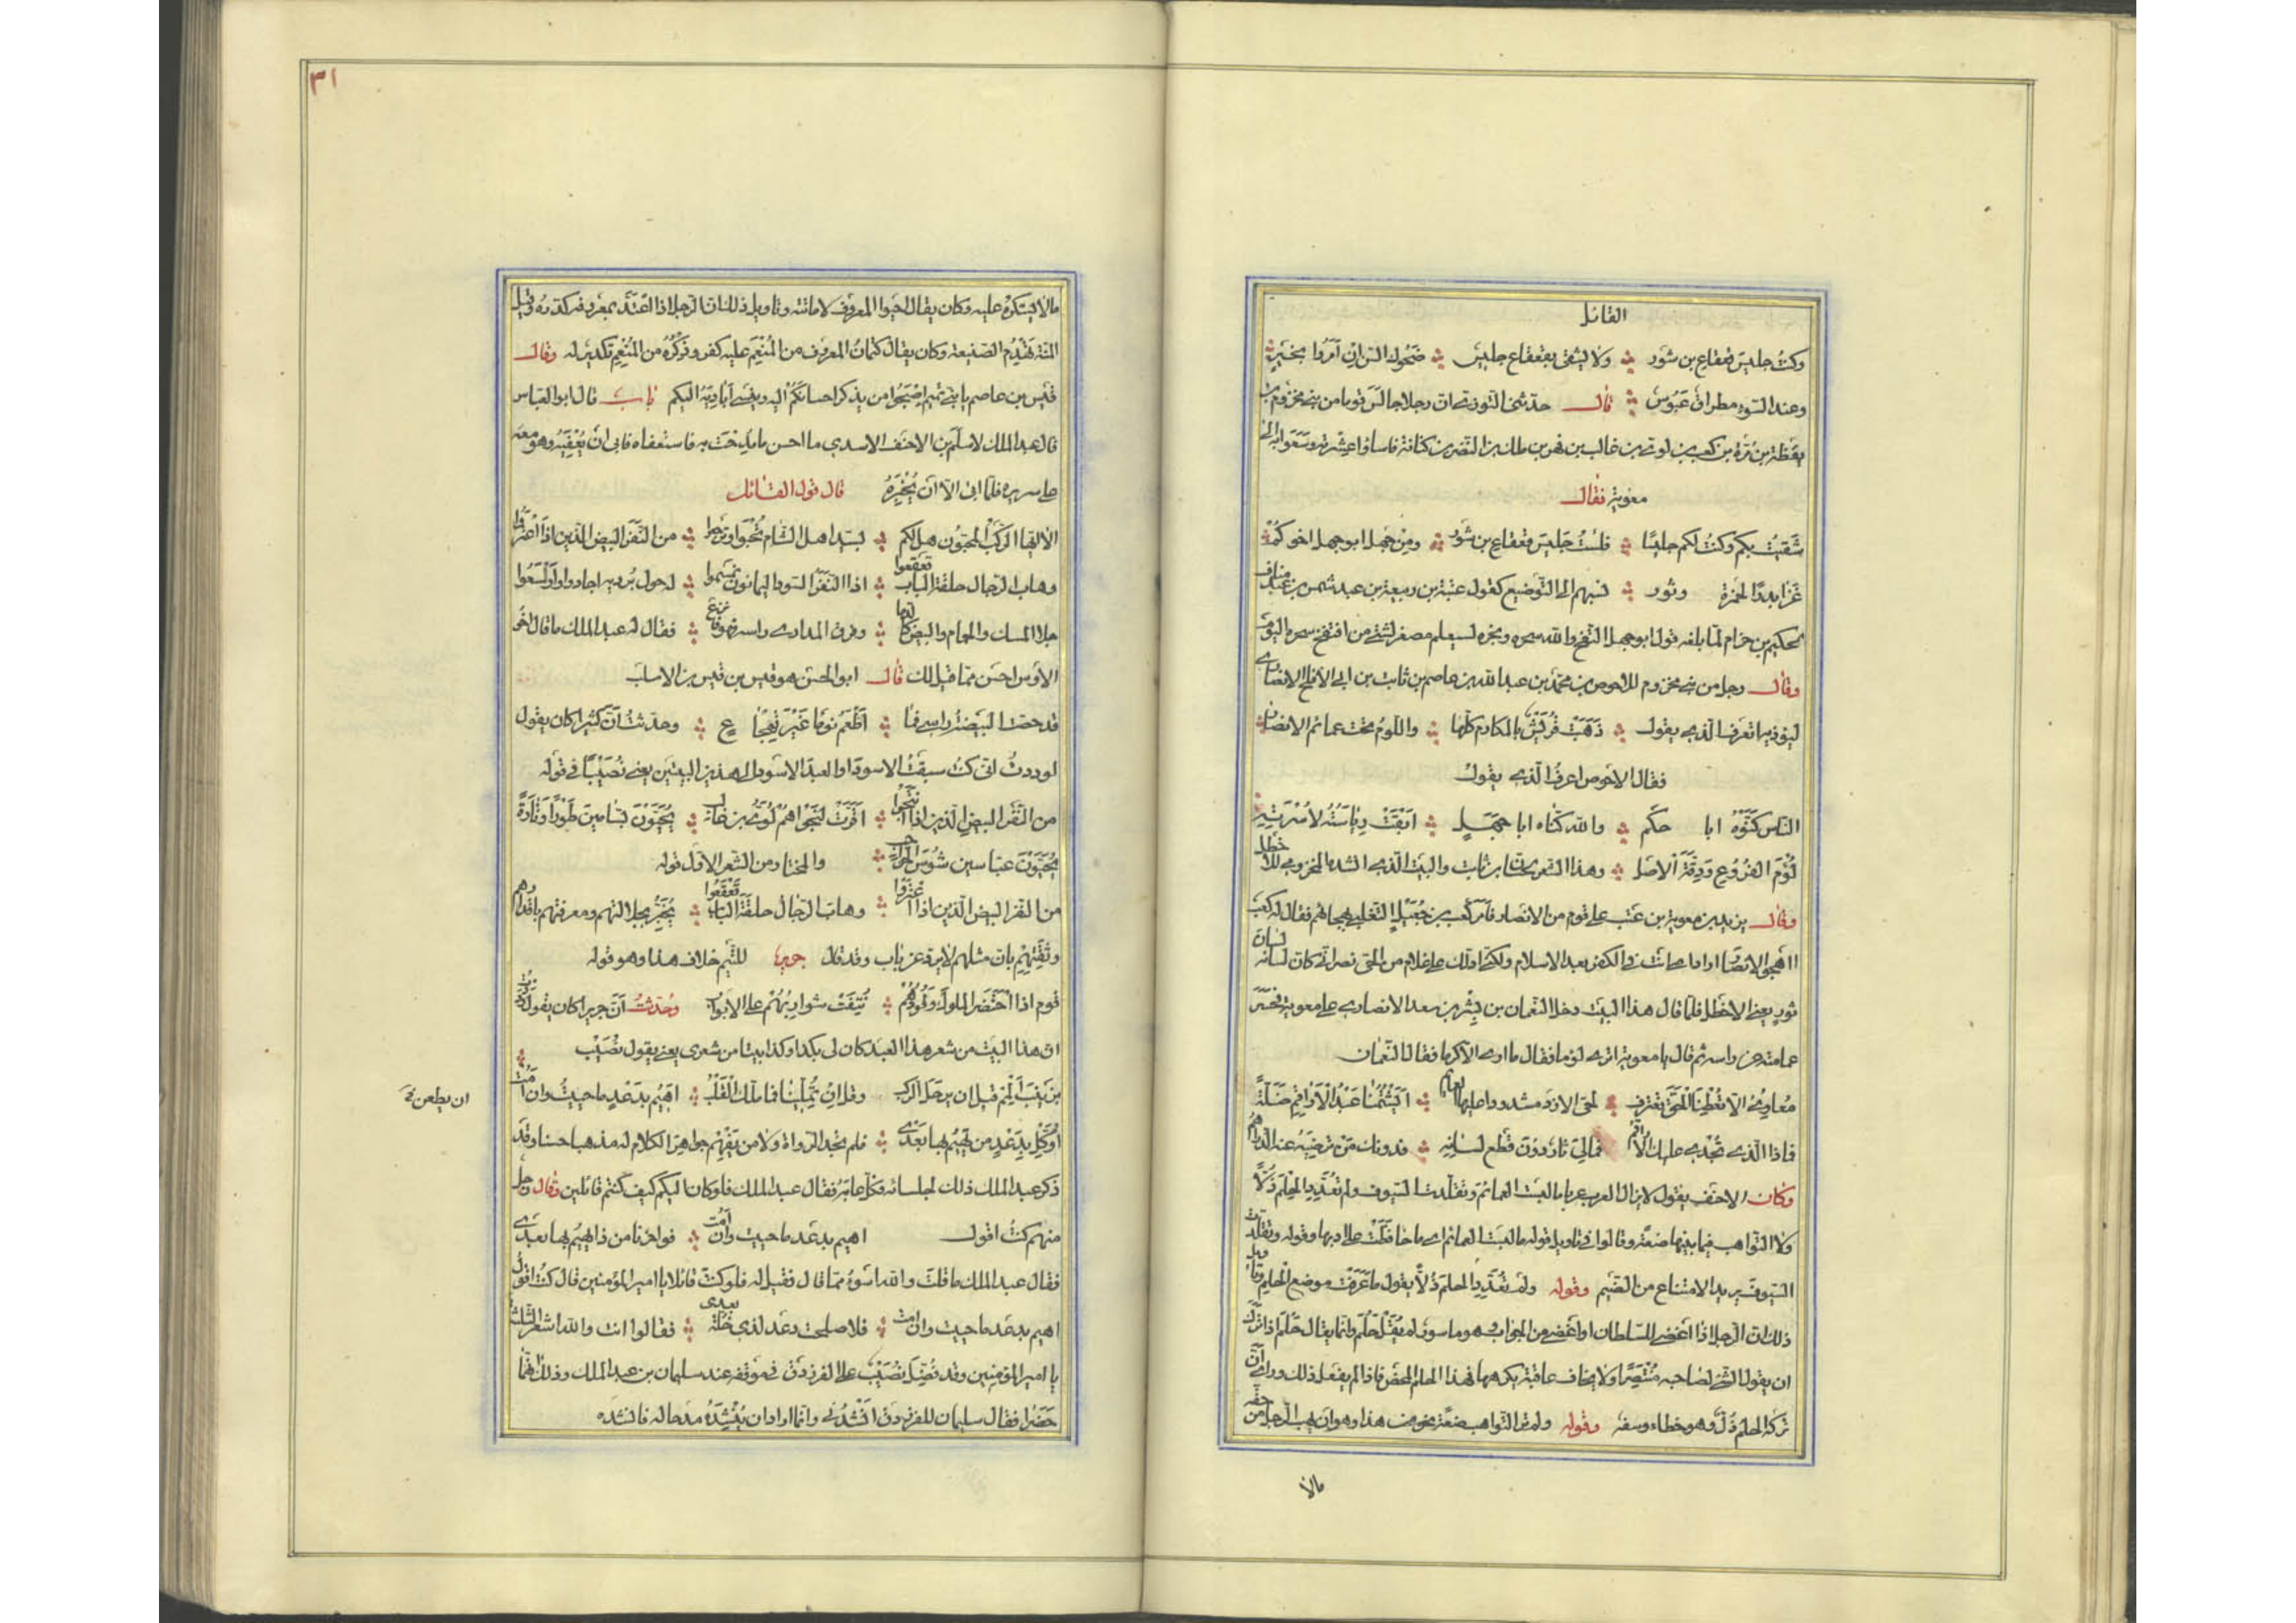 القائل
وكنتُ جليسَ قعقاعِ بن شَور ولا يشقى بقعقاع جليسُ ضحُوك السنّ إن أمروا بخيرٍ
وعند السّوء مطراقٌ عَبُوسُ قال حدثنى التوزي ان رجلا جالس قوما من بني مخزوم بن
يقظة بن مُرّة بن كعب بن لوي بن غالب بن فهر بن مالك بن النضر بن كنانة فاساؤا عِشْرته وسَعَوا به الى
معوية فقال
شَقيتُ بكم وكنتُ لكم جليسًا فلستُ جليسَ قعقاعِ بن شَورٍ ومِن جهلٍ ابو جهلٍ اخوكُمْ
غزا بدرًا بمجمرة وتَور نسبهم الى التوضيع كقول عتبة بن ربيعة بن عبد شمس بن عبد مناف
لحكيم بن حزام لمّا بلغه قول ابو جهل انتفخ والله سحره سيعلم مصفر استه من انتفخ سحره اليوم
وقال رجل من بني مخزوم للاحوص بن محمد بن عبد الله بن عاصم بن ثابت بن ابي الاقلح الانصاري
ليوذيه اتعرف الذي يقول ذَهَبَتْ قُرَيْشٌ بالمكارم كلها واللؤمُ تحت عمائم الانصار
فقال الاحوص اعرف الذي يقول
الناس كنّوهُ ابا حكم والله كنّاه ابا جهلٍ ابقَتْ رياسَتُهُ لأُسْرَتِهِ
لُؤْمَ الفُرُوعِ ودِقّةَ الأصلِ وهذا الشعر لحسّان بن ثابت والبيت الذي انشده المخزومي للاخطل
وقال يزيد بن معوية بن عتب على قوم من الانصار فأمر كعب بن جُعَيْلٍ التغلبي بهجائهم فقال له كعب
ااهجو الانصار ارادي انت في الكفر بعد الاسلام ولكني ادلك على غلام من الحي نصراني كان لسانه لسان
ثور يعني الاخطل فلمّا قال هذا البيت دخل النعمان بن بشير بن سعد الانصاري على معوية فحسر
عمامته عن راسه ثم قال يا معوية اترى لؤما فقال ما ارى الا كرما فقال النعمان
مُعاوِيُّ الّا تُعْطِنَا الحقَّ تَعترف لحى الازد مشدودا عليها العمائم ايَشتُمُنا عَبْدُ الأراقِمِ ضَلّةً
فماذا الذي تُجْدي عليك الاراقم فمالي ثارٌ دون قَطْعِ لسانه فدونك مَن تُرضيه عند الدراهم
وكان الاحنف يقول لا يزال العرب عربا ما لبست العمائم وتقلّدت السيوف ولم تُعْدِدِ الحِلْمَ ذُلًّا
ولا التواهب فيما بينها ضعة وقالوا في تاويل قوله ما لبست العمائم اي ما حافظت على زيها وقوله وتقلدت
السيوف يريد الامتناع من الضيم وقوله ولم تُعْدِدِ الحلم ذُلًّا يقول ما عَرَفتْ موضع الحلم وتاويل
ذلك ان الرجل اذا اغضى للسلطان او اغضى عن الجواب وهو ماسور لم يُقَلْ حَلُمَ وانما يقال حَلُمَ اذا ترك
ان يقول الشئ لصاحبه مُنْتَصِرًا ولا يخاف عاقبة يكرهها فهذا الحلم المحض فاذا لم يفعل ذلك وراى ان
تركه الحلم ذُلٌّ وهو خطاء وسفه وقوله ولم تر التواهب ضعة نحو من هذا وهو ان يهب الرجل من حقه
مالا
٣١
مالا يستكره عليه وكان يقال احيوا المعروف باماتته وتاويل ذلك ان الرجل اذا اعْتَدَّ بمعروفه كدره وقيل
المنة تهدم الصنيعة وكان يقال كتمان المعروف من المُنْعَم عليه كفر وذِكْرُهُ من المُنْعِم تكدير له وقال
قيس بن عاصم يا بني تميم اصحبوا من يذكر احسانكم اليه وينسى أياديه اليكم باب قال ابو العباس
قال عبد الملك لاسلم بن الاحنف الاسدي ما احسن ما مُدِحْتَ به فاستعفاه فابى ان يُعْفِيَهُ وهو معه
على سريره فلمّا ابى الا ان يُخْبِرَهُ قال قول القائل
الا ايها الركب المخبون هل لكم بسيد اهل الشام تُحْبَوا وترجعوا من النَّفَرِ البيض الذين اذا اعتزوا
وهاب الرجال حلقة الباب قعقعوا اذا النفر السود اليمانون نمنموا له حول بُرديه اجادوا واوسعوا
جلا المسك والحمام والبيض كالدما وفرق المدارى راسه فهو انزع فقال له عبد الملك ما قال اخو
الاوس احسن مما قيل لك قال ابو الحسن هو قيس بن الاسلت
قد حصّت البيضة راسي فما أطْعَمُ نوما غَيْرَ تَهْجَاعِ وحدثتُ أنّ كثيرا كان يقول
لوددتُ انّي كنت سبقتُ الاسود او العبد الاسود الى هذين البيتين يعني نُصَيْبًا في قوله
من النَّفَر البيض الذين اذا انتجوا اقرّت لنجواهم لُوَيُّ بن غالب يُحَيَّوْنَ بسّامين طَوْرًا وتارةً
يُحَيَّوْنَ عباسين شُوسَ الحواجب والمختار من الشعر الاول قوله
من النفر البيض الذين اذا اعتزوا وهاب الرجال حلقة الباب قَعْقَعُوا يُخْبِرُ بجلالتهم ومعرفتهم باقدارهم
وثِقَتِهِمْ بان مثلهم لا يردّ عن باب وقد قال جرير للتيم خلاف هذا وهو قوله
قوم اذا احْتَضَرَ الملوكَ وُفُودُهُمْ نُتِفَتْ شواربُهُمْ على الابواب وحُدثتُ أنّ جريرا كان يقول وددتُ
ان هذا البيت من شعر هذا العبد كان لي بكذا وكذا بيتا من شعري يعني يقول نُصَيْب
بزينبَ ألْمِمْ قبل ان يرحل الركب وقل ان تَمَلّينا فما ملّكِ القَلْبُ اهيم بدعد ما حييتُ وان امت
اوكّل بدعدٍ من يَهيم بها بَعْدي فلم تجد الرواة ولا من يَفْهَم جواهر الكلام له مذهبا حسنا وقد
ذكر عبد الملك ذلك لجلسائه فكلٌّ عابه فقال عبد الملك فلو كان اليكم كيف كنتم قائلين فقال رجل
منهم كنت اقول اهيم بدعد ما حييت وان أمت فواحزنا من ذا يهيم بها بعدي
فقال عبد الملك ما قلتَ والله اسْوَءُ ممّا قال فقيل له فلو كنت قائلا يا امير المؤمنين قال كنت اقول
اهيم بدعد ما حييت وان امت فلا صلحت دعد لذي خُلّة بعدي فقالوا انت والله اشعر الثلثة
يا امير المؤمنين وقد فُضِّلَ نُصَيْب على الفرزدق في موقفه عند سليمان بن عبد الملك وذلك انهما
حَضَرا فقال سليمان للفرزدق أنْشِدْني وانما اراد ان يُنْشِدَهُ مدحا له فانشده
ان يطعن